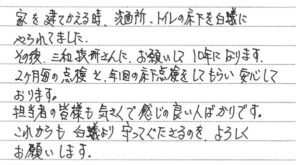 家を建てかえる時、洗面所、トイレの床下を白蟻に
やられてました。
その後、三和技研さんに、お願いして10年になります。
2ヶ月毎の点検と、年1回の床下点検をしてもらい安心して
おります。
担当者の皆様も気さくで感じの良い人ばかりです。
これからも白蟻より守ってくださるのを、よろしく
お願いします。